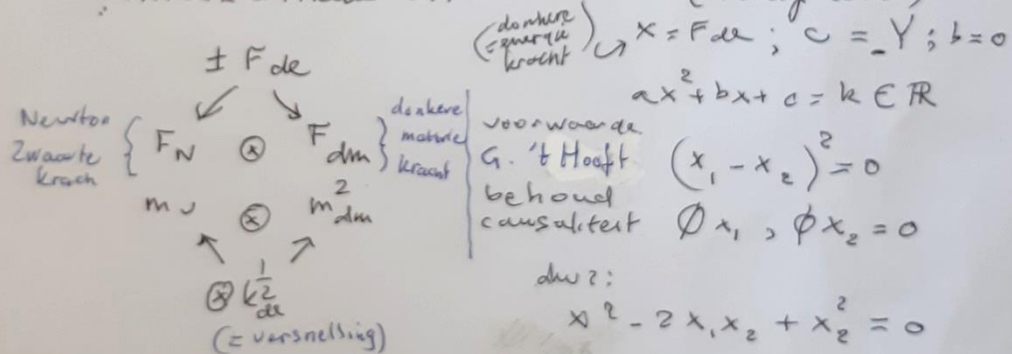 ± F de
Newton
Zwaarte
krach
F N ⊗ F dm
donkere
materie
kracht
m v ⊗ m² dm
⊗ k^½ de
(= versnelling)
(donkere
= energie
kracht)
x = F de ; c = -Y ; b = 0
ax² + bx + c = k ∈ ℝ
voorwaarde
G. 't Hooft (x₁ - x₂)² = 0
behoud
causaliteit ∅ x₁ , ϕ x₂ = 0
dus:
x² - 2 x₁ x₂ + x₂² = 0